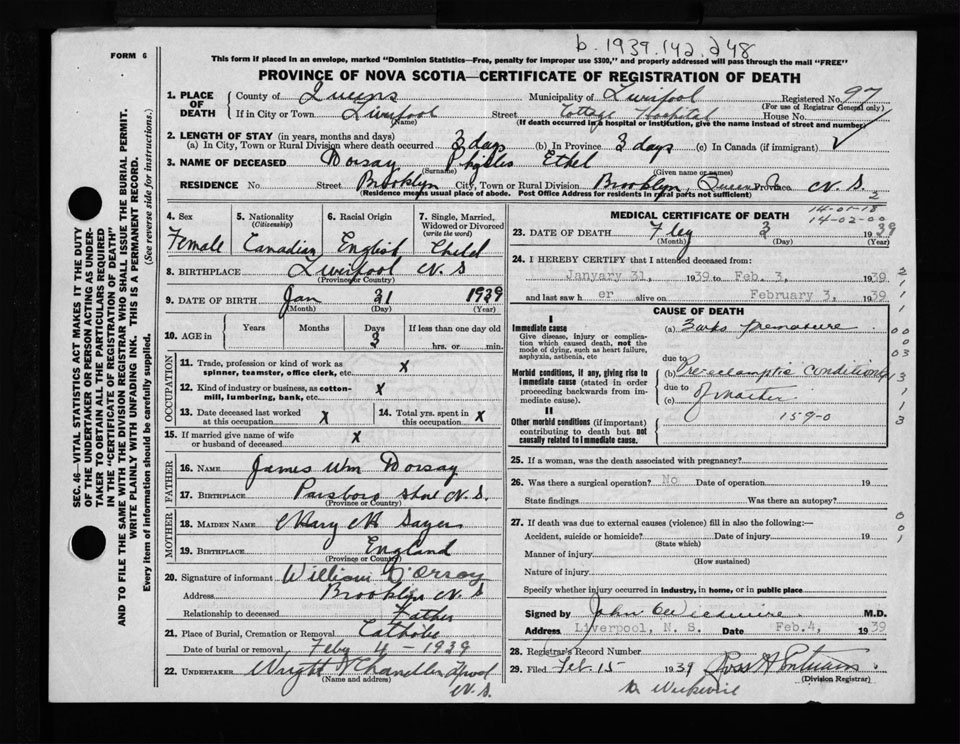 b. 1939.142.248
FORM 6
This form if placed in an envelope, marked "Dominion Statistics—Free, penalty for improper use $300," and properly addressed will pass through the mail "FREE"
PROVINCE OF NOVA SCOTIA—CERTIFICATE OF REGISTRATION OF DEATH
1. PLACE OF DEATH
County of Queens Municipality of Liverpool Registered No. 97
(For use of Registrar General only)
If in City or Town Liverpool Street Cottage Hospital House No.
(Name) (If death occurred in a hospital or institution, give the name instead of street and number)
2. LENGTH OF STAY (in years, months and days)
(a) In City, Town or Rural Division where death occurred 3 days (b) In Province 3 days (c) In Canada (if immigrant)
3. NAME OF DECEASED Dorsay Phyllis Ethel
(Surname) (Given name or names)
RESIDENCE No. Street Brooklyn City, Town or Rural Division Brooklyn, Queens Province N. S.
(Residence means usual place of abode. Post Office Address for residents in rural parts not sufficient)
4. Sex Female
5. Nationality (Citizenship) Canadian
6. Racial Origin English
7. Single, Married, Widowed or Divorced (write the word) Child
8. BIRTHPLACE Liverpool N. S
(Province or Country)
9. DATE OF BIRTH Jan 31 1939
(Month) (Day) (Year)
10. AGE in Years Months Days 3 If less than one day old hrs. or min.
OCCUPATION
11. Trade, profession or kind of work as spinner, teamster, office clerk, etc. X
12. Kind of industry or business, as cotton-mill, lumbering, bank, etc. X
13. Date deceased last worked at this occupation X
14. Total yrs. spent in this occupation X
15. If married give name of wife or husband of deceased. X
FATHER
16. NAME James Wm Dorsay
17. BIRTHPLACE Parsboro Shore N. S.
(Province or Country)
MOTHER
18. MAIDEN NAME Mary M Sayer
19. BIRTHPLACE England
(Province or Country)
20. Signature of informant William D'orsay
Address Brooklyn N. S
Relationship to deceased Father
21. Place of Burial, Cremation or Removal Catholic
Date of burial or removal Feby 4 – 1939
22. UNDERTAKER Wright & Chandler Lpool
(Name and address) N. S.
14-01-18
14-02-00
MEDICAL CERTIFICATE OF DEATH
23. DATE OF DEATH Feby 3 1939
(Month) (Day) (Year)
24. I HEREBY CERTIFY that I attended deceased from:
Janyary 31, 1939 to Feb. 3, 1939
and last saw h er alive on February 3, 1939
CAUSE OF DEATH
I
Immediate cause
Give disease, injury or complication which caused death, not the mode of dying, such as heart failure, asphyxia, asthenia, etc
(a) premature
due to
Morbid conditions, if any, giving rise to immediate cause (stated in order proceeding backwards from immediate cause).
(b) Preeclamptic condition
due to
(c) of mother
II
Other morbid conditions (if important) contributing to death but not causally related to immediate cause.
159-0
25. If a woman, was the death associated with pregnancy?
26. Was there a surgical operation? No Date of operation 19
State findings Was there an autopsy?
27. If death was due to external causes (violence) fill in also the following:—
Accident, suicide or homicide? Date of injury 19
(State which)
Manner of injury
(How sustained)
Nature of injury
Specify whether injury occurred in industry, in home, or in public place
Signed by John C Wickwire M.D.
Address Liverpool, N. S. Date Feb.4, 1939
28. Registrar's Record Number
29. Filed Feb. 15 1939
(Division Registrar)
SEC. 46—VITAL STATISTICS ACT MAKES IT THE DUTY OF THE UNDERTAKER OR PERSON ACTING AS UNDERTAKER TO OBTAIN ALL THE PARTICULARS REQUIRED IN THE "CERTIFICATE OF REGISTRATION OF DEATH"
AND TO FILE THE SAME WITH THE DIVISION REGISTRAR WHO SHALL ISSUE THE BURIAL PERMIT.
WRITE PLAINLY WITH UNFADING INK. THIS IS A PERMANENT RECORD.
Every item of information should be carefully supplied. (See reverse side for instructions.)